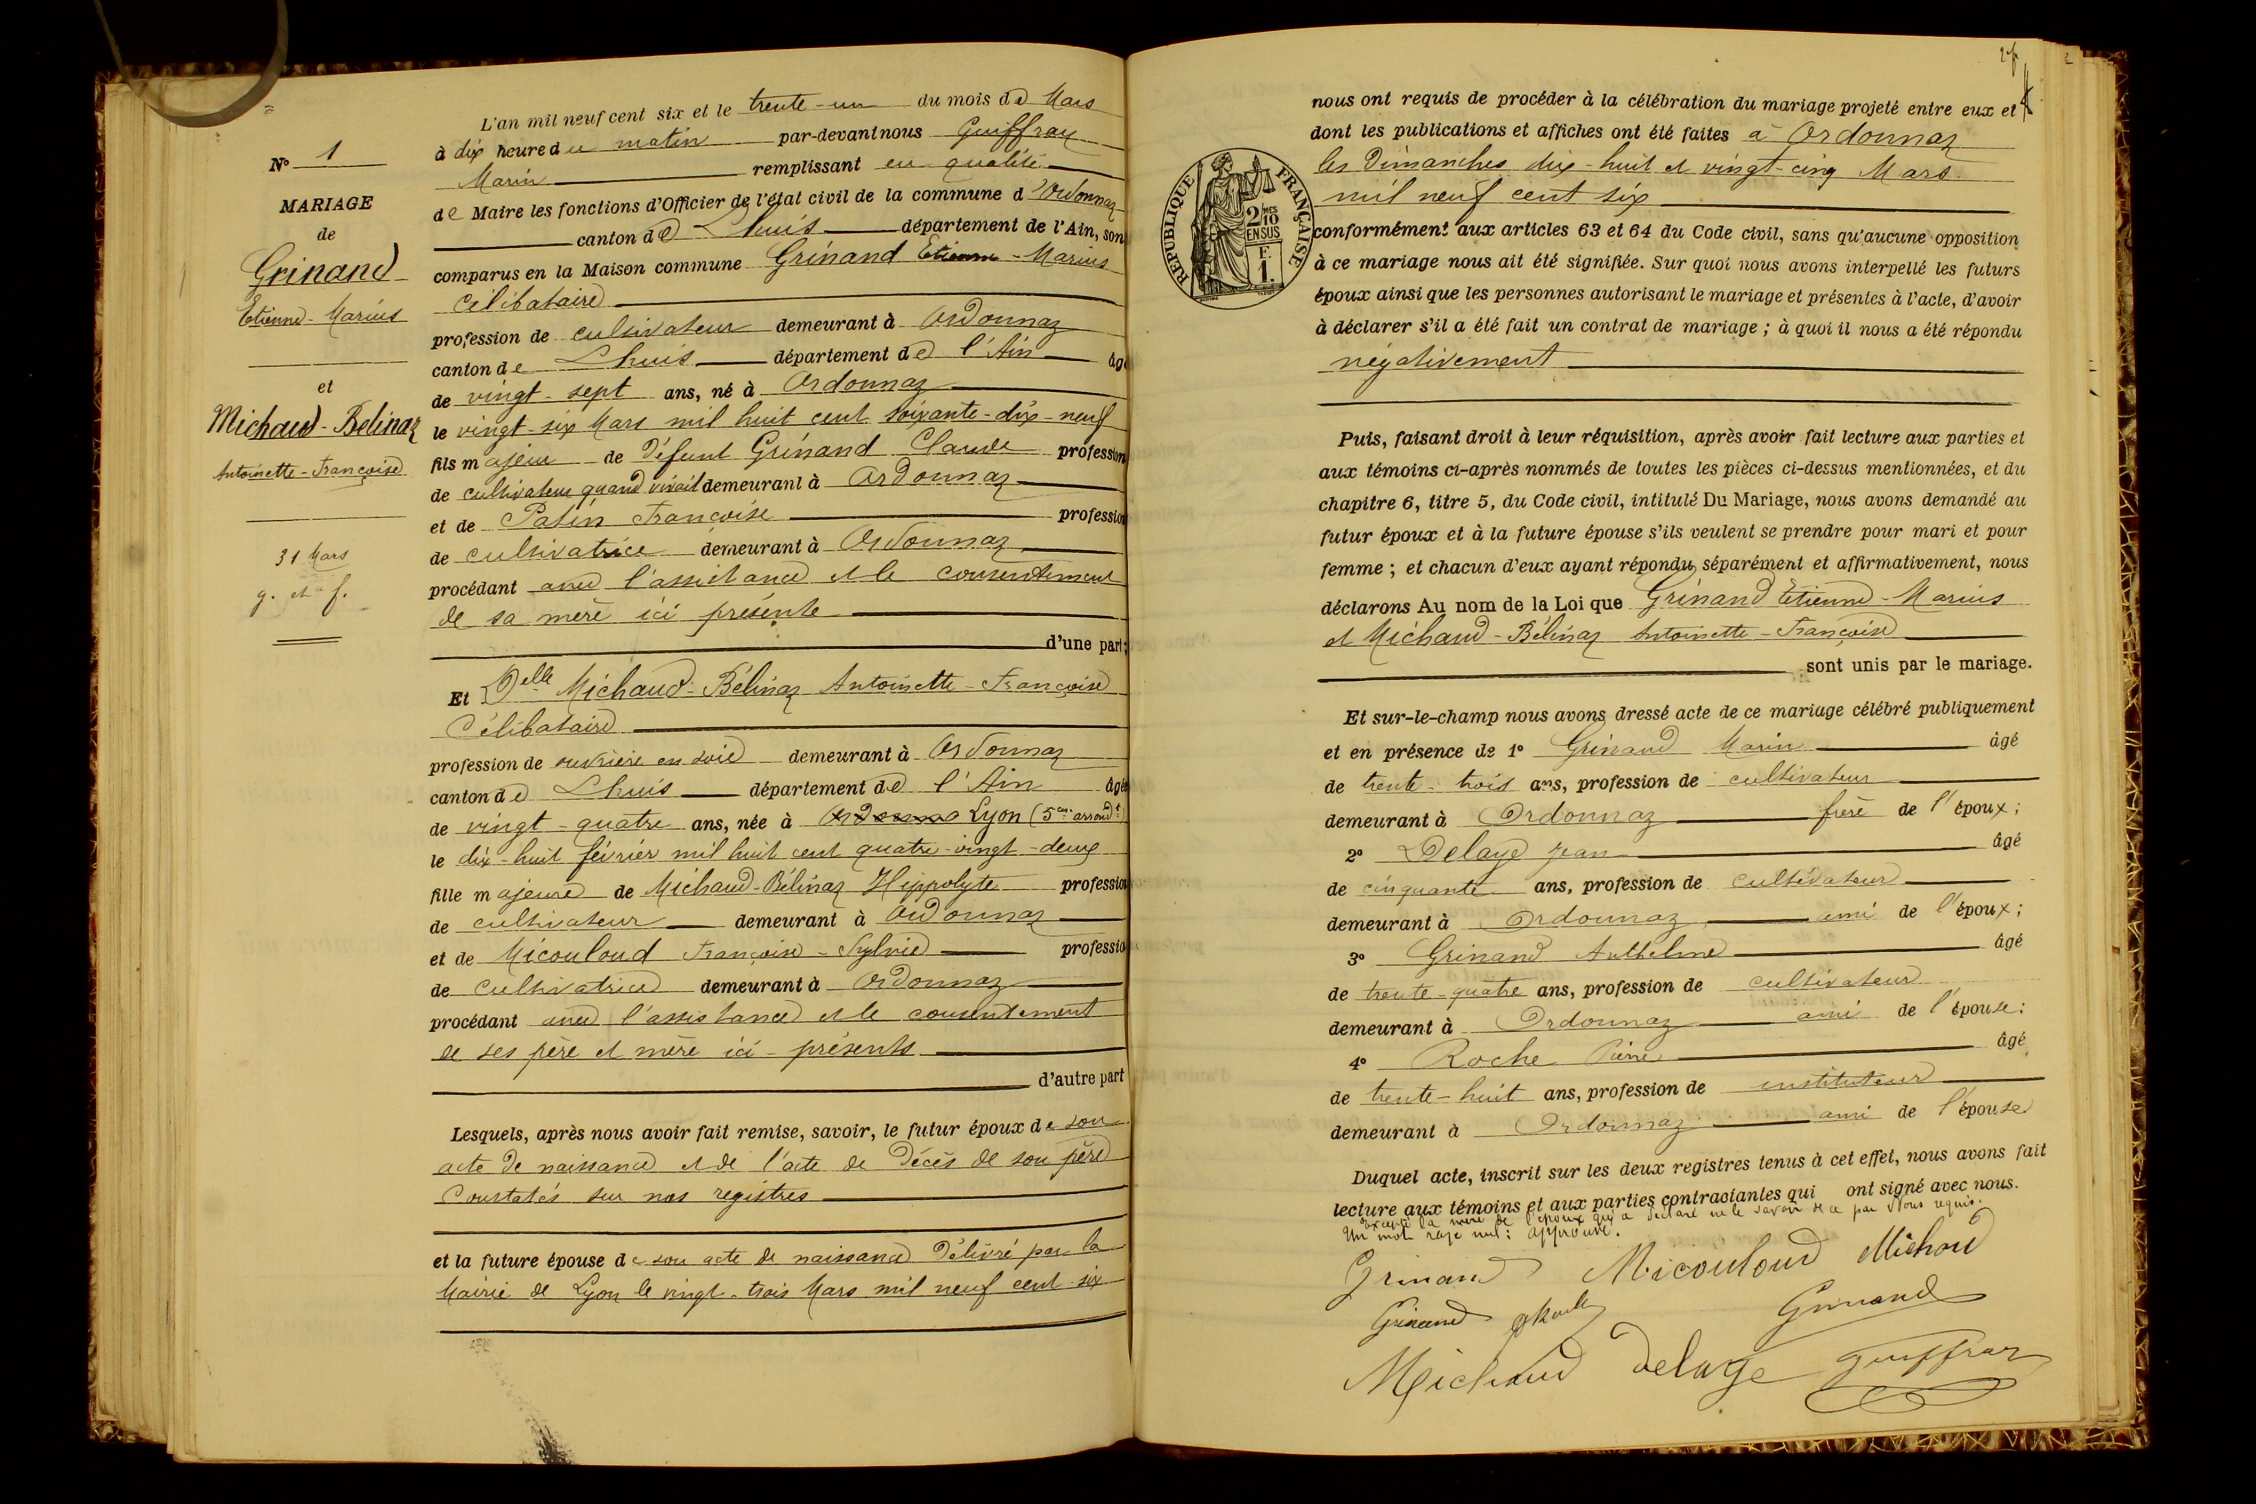 N° 1
MARIAGE
de
Grinand
Etienne-Marius
et
Michaud-Bélinaz
Antoinette-Françoise
31 Mars
g. et f.
L'an mil neuf cent six et le trente-un du mois de Mars
à dix heure du matin par-devant nous Guiffray
Marin remplissant en qualité
de Maire les fonctions d'Officier de l'état civil de la commune d'Ordonnaz
canton de Lhuis département de l'Ain, son
comparus en la Maison commune Grinand Etienne-Marius
célibataire
profession de cultivateur demeurant à Ordonnaz
canton de Lhuis département de l'Ain âgé
de vingt-sept ans, né à Ordonnaz
le vingt-six Mars mil huit cent soixante-dix-neuf
fils majeur de défunt Grinand Claude profession
de cultivateur quand vivait demeurant à Ordonnaz
et de Patin Françoise profession
de cultivatrice demeurant à Ordonnaz
procédant avec l'assistance et le consentement
de sa mère ici présente
d'une part;
Et Delle Michaud-Bélinaz Antoinette-Françoise
Célibataire
profession de ouvrière en soie demeurant à Ordonnaz
canton de Lhuis département de l'Ain âgée
de vingt-quatre ans, née à Lyon (5me arrondt)
le dix-huit février mil huit cent quatre-vingt-deux
fille majeure de Michaud-Bélinaz Hippolyte profession
de cultivateur demeurant à Ordonnaz
et de Micouloud Françoise-Sylvie profession
de cultivatrice demeurant à Ordonnaz
procédant avec l'assistance et le consentement
de ses père et mère ici-présents
d'autre part
Lesquels, après nous avoir fait remise, savoir, le futur époux de son
acte de naissance et de l'acte de décès de son père
Constatés sur nos registres
et la future épouse de son acte de naissance délivré par la
Mairie de Lyon le vingt-trois Mars mil neuf cent-six
2
nous ont requis de procéder à la célébration du mariage projeté entre eux et
dont les publications et affiches ont été faites à Ordonnaz
les Dimanches dix-huit et vingt-cinq Mars
mil neuf cent six
RÉPUBLIQUE FRANÇAISE
2/10 MES
EN SUS
F.
1.
conformément aux articles 63 et 64 du Code civil, sans qu'aucune opposition
à ce mariage nous ait été signifiée. Sur quoi nous avons interpellé les futurs
époux ainsi que les personnes autorisant le mariage et présentes à l'acte, d'avoir
à déclarer s'il a été fait un contrat de mariage; à quoi il nous a été répondu
négativement
Puis, faisant droit à leur réquisition, après avoir fait lecture aux parties et
aux témoins ci-après nommés de toutes les pièces ci-dessus mentionnées, et du
chapitre 6, titre 5, du Code civil, intitulé Du Mariage, nous avons demandé au
futur époux et à la future épouse s'ils veulent se prendre pour mari et pour
femme; et chacun d'eux ayant répondu séparément et affirmativement, nous
déclarons Au nom de la Loi que Grinand Etienne-Marius
et Michaud-Bélinaz Antoinette-Françoise
sont unis par le mariage.
Et sur-le-champ nous avons dressé acte de ce mariage célébré publiquement
et en présence de 1° Grinand Marin âgé
de trente-trois ans, profession de cultivateur
demeurant à Ordonnaz frère de l'époux;
2° Delaye Jean âgé
de cinquante ans, profession de cultivateur
demeurant à Ordonnaz ami de l'époux;
3° Grinand Anthelme âgé
de trente-quatre ans, profession de cultivateur
demeurant à Ordonnaz ami de l'épouse;
4° Roche Pierre âgé
de trente-huit ans, profession de instituteur
demeurant à Ordonnaz ami de l'épouse
Duquel acte, inscrit sur les deux registres tenus à cet effet, nous avons fait
lecture aux témoins et aux parties contractantes qui ont signé avec nous.
Excepté la mère de l'époux qui a déclaré ne le savoir de ce par Nous requis.
Un mot rayé nul: approuvé.
Grinand Micouloud Michoud
Grinand PRoche Grinand
Michaud Delaye Guiffray